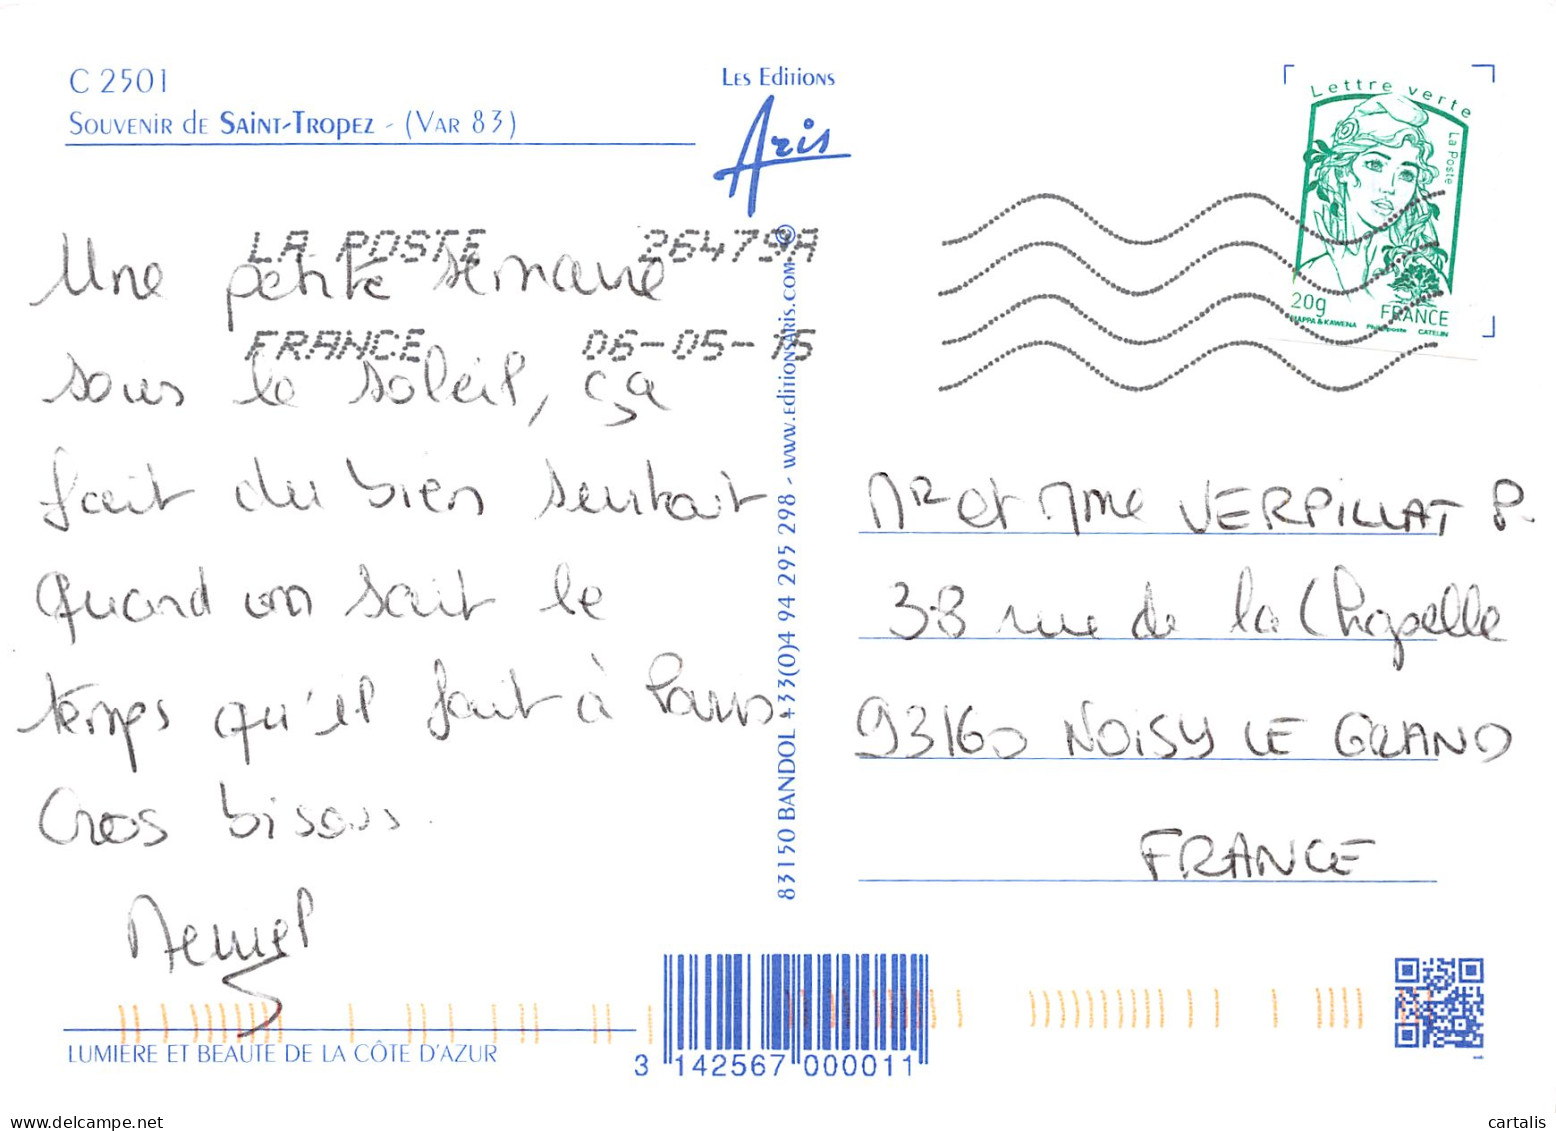 C 2501
Souvenir de Saint-Tropez - (Var 83)
Les Editions
Aris
Lettre verte
La Poste
20g
FRANCE
MAPPA & KAWENA Phil@poste CATELIN
LA POSTE 26479A
FRANCE 06-05-15
Une petite semaine
sous le soleil, ça
fait du bien surtout
quand on sait le
temps qu'il fait à Paris
Gros bisous.
83150 BANDOL +33(0)4 94 295 298 - www.editionsaris.com ©
Mr et Mme VERPILLAT P.
38 rue de la Chapelle
93160 NOISY LE GRAND
FRANCE
LUMIERE ET BEAUTE DE LA CÔTE D'AZUR
3 142567 000011
1
cartalis